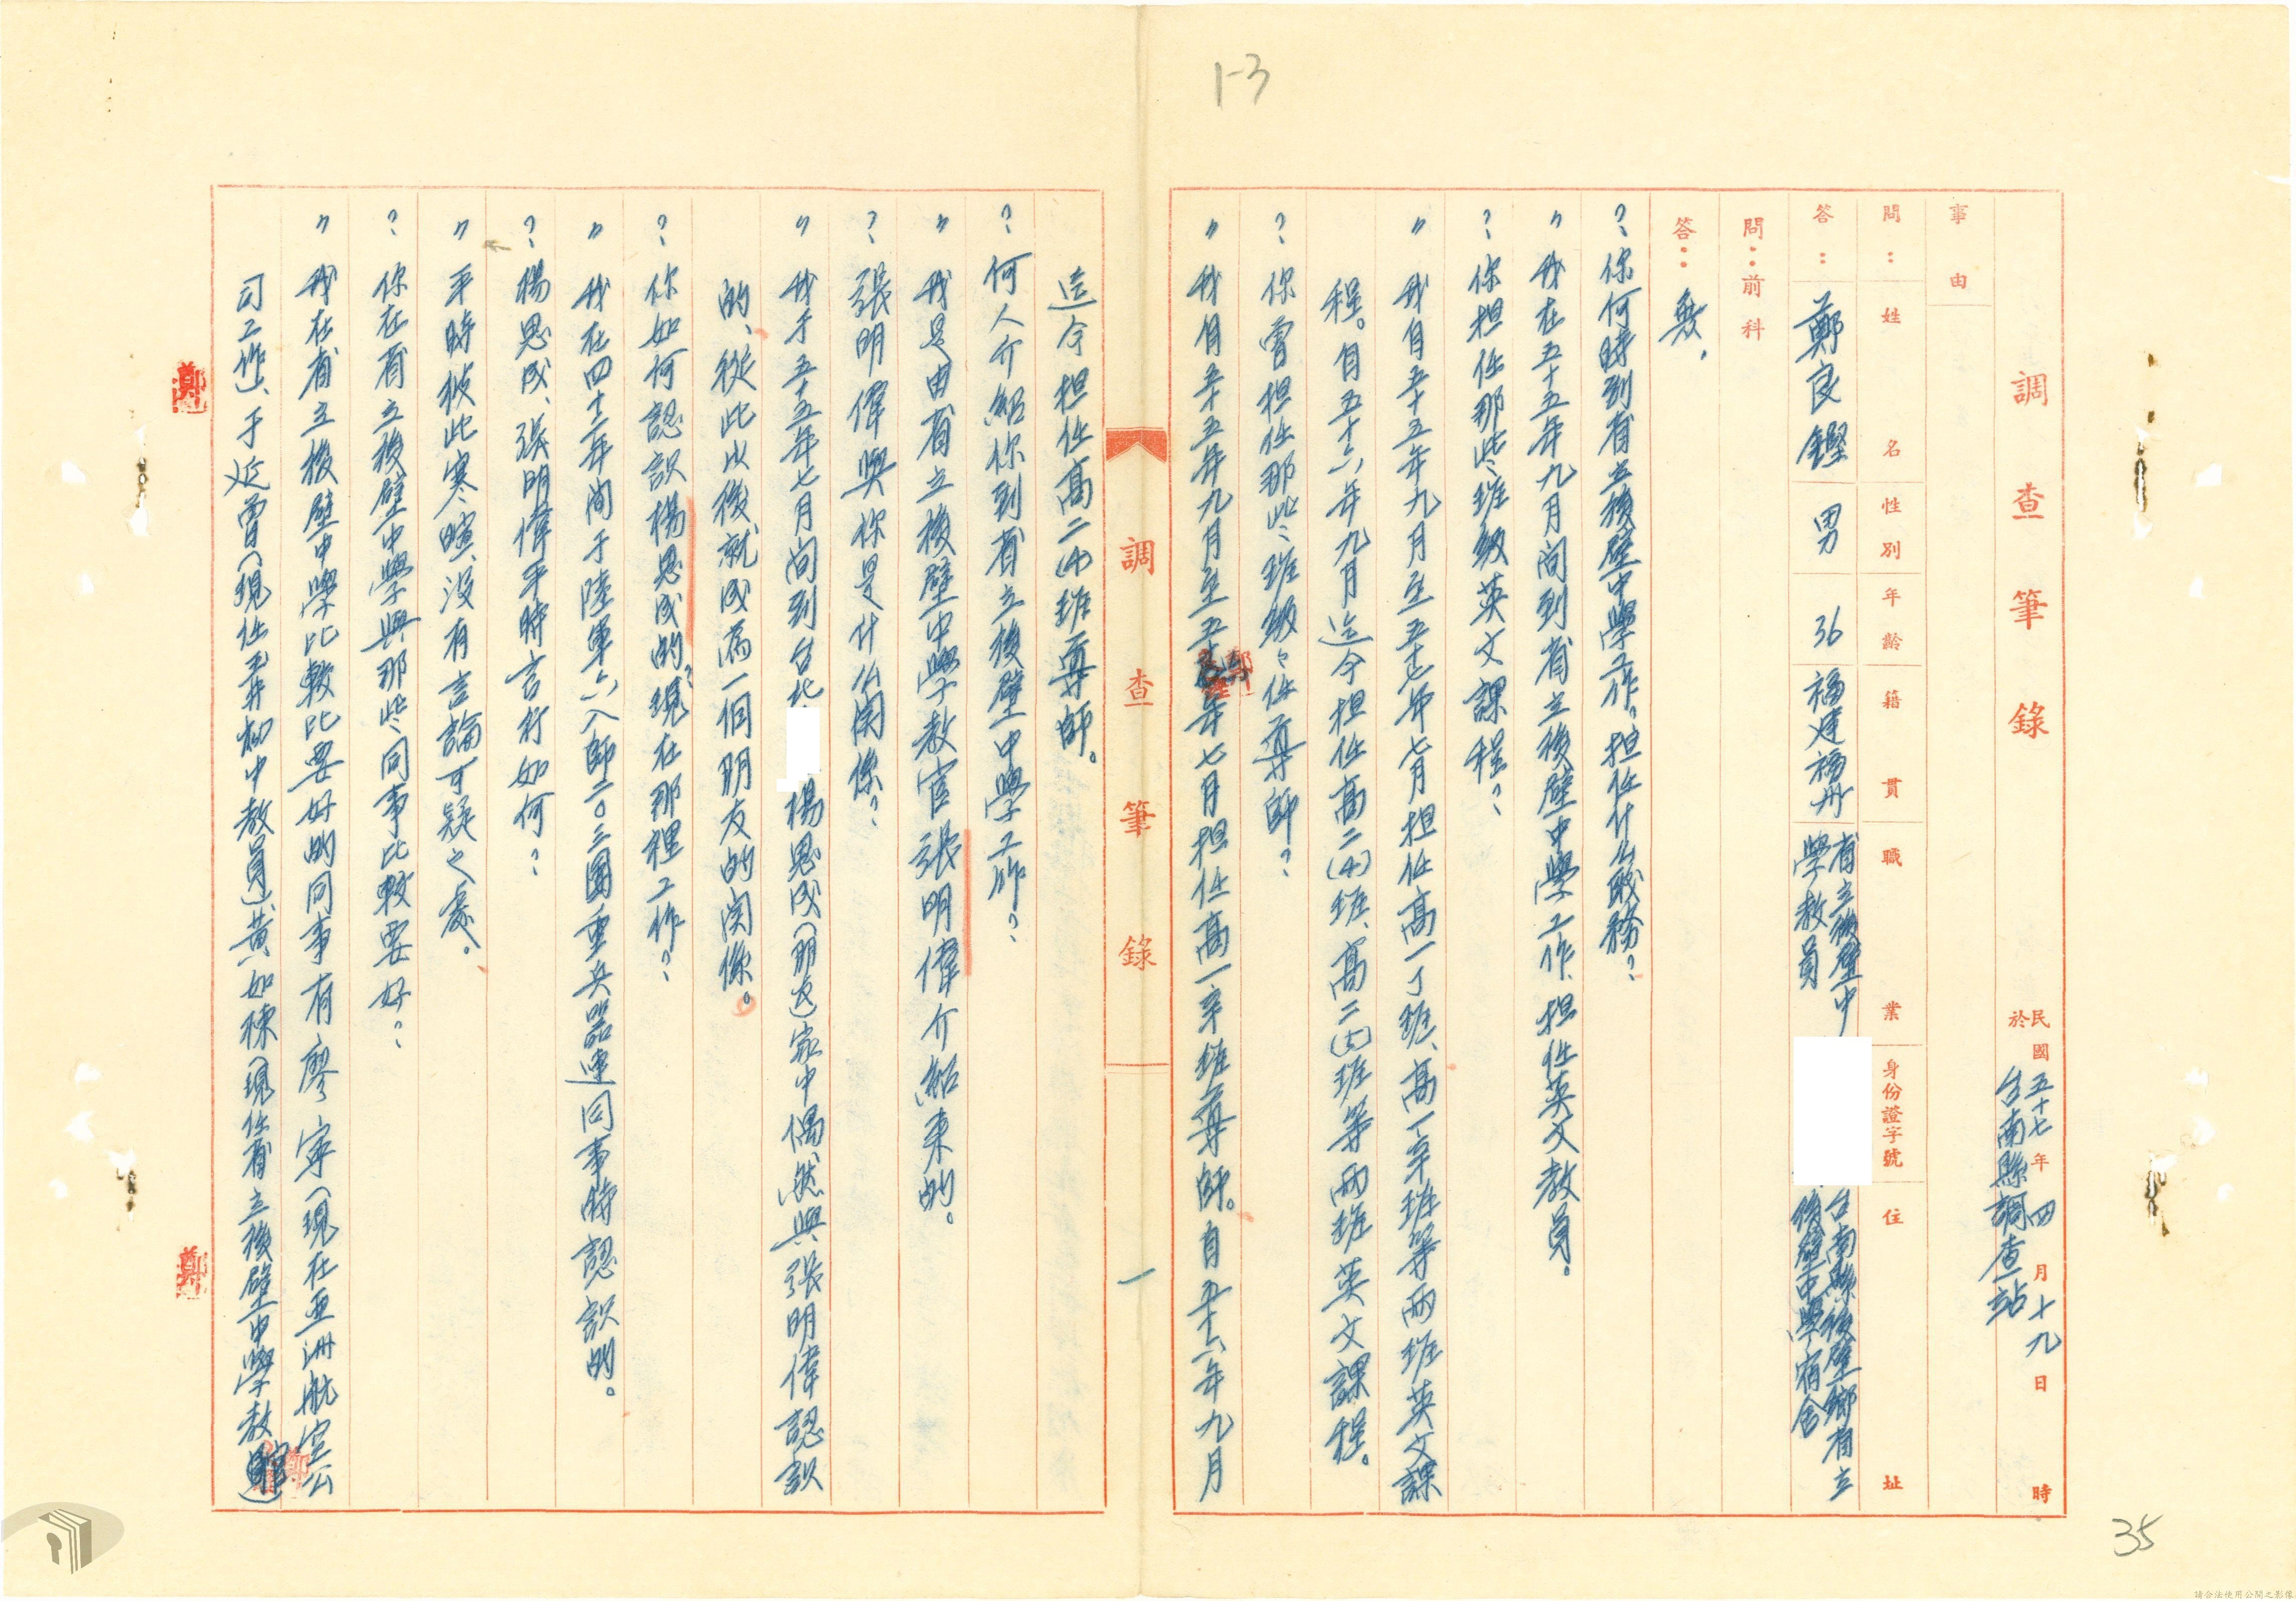 1-3
調查筆錄
民國五十七年四月十九日 時
於台南縣調查站
事由
問：姓名 性別 年齡 籍貫 職業 身份證字號 住址
答：鄭良鏗 男 36 福建福州 省立後壁中學教員 台南縣後壁鄉省立後壁中學宿舍
問：前科
答：無。
？你何時到省立後壁中學工作。担任什么職務？
〃我在五十五年九月間到省立後壁中學工作、担任英文教員。
？你担任那些班級英文課程？
〃我自五十五年九月至五十七年七月担任高一丁班、高一辛班等兩班英文課
程。自五十六年九月迄今担任高二(4)班、高二(5)班等兩班英文課程。
？你曾担任那些班級任導師？
〃我自五十五年九月至五十年七月担任高一辛班導師。自五十六年九月
調查筆錄
一
迄今担任高二(4)班導師。
？何人介紹你到省立後壁中學工作？
〃我是由省立後壁中學教官張明偉介紹來的。
？張明偉與你是什么関係？
〃我于五十五年七月间到台北 楊思成(朋友)家中偶然與張明偉認識
的、從此以後就成為一個朋友的関係。
？你如何認識楊思成的？現在那裡工作？
〃我在四十三年間于陸軍六八師二〇三團重兵器連同事時認識的。
？楊思成、張明偉平時言行如何？
〃平時彼此寒暄、沒有言論可疑之處。
？你在省立後壁中學與那些同事比較要好？
〃我在省立後壁中學比較比要好的同事有廖寧(現在亞洲航空公
司工作)、于延曾(現任玉井初中教員)、黃如棟(現任省立後壁中學教官)
鄭
鄭
35
請合法使用公開之影像